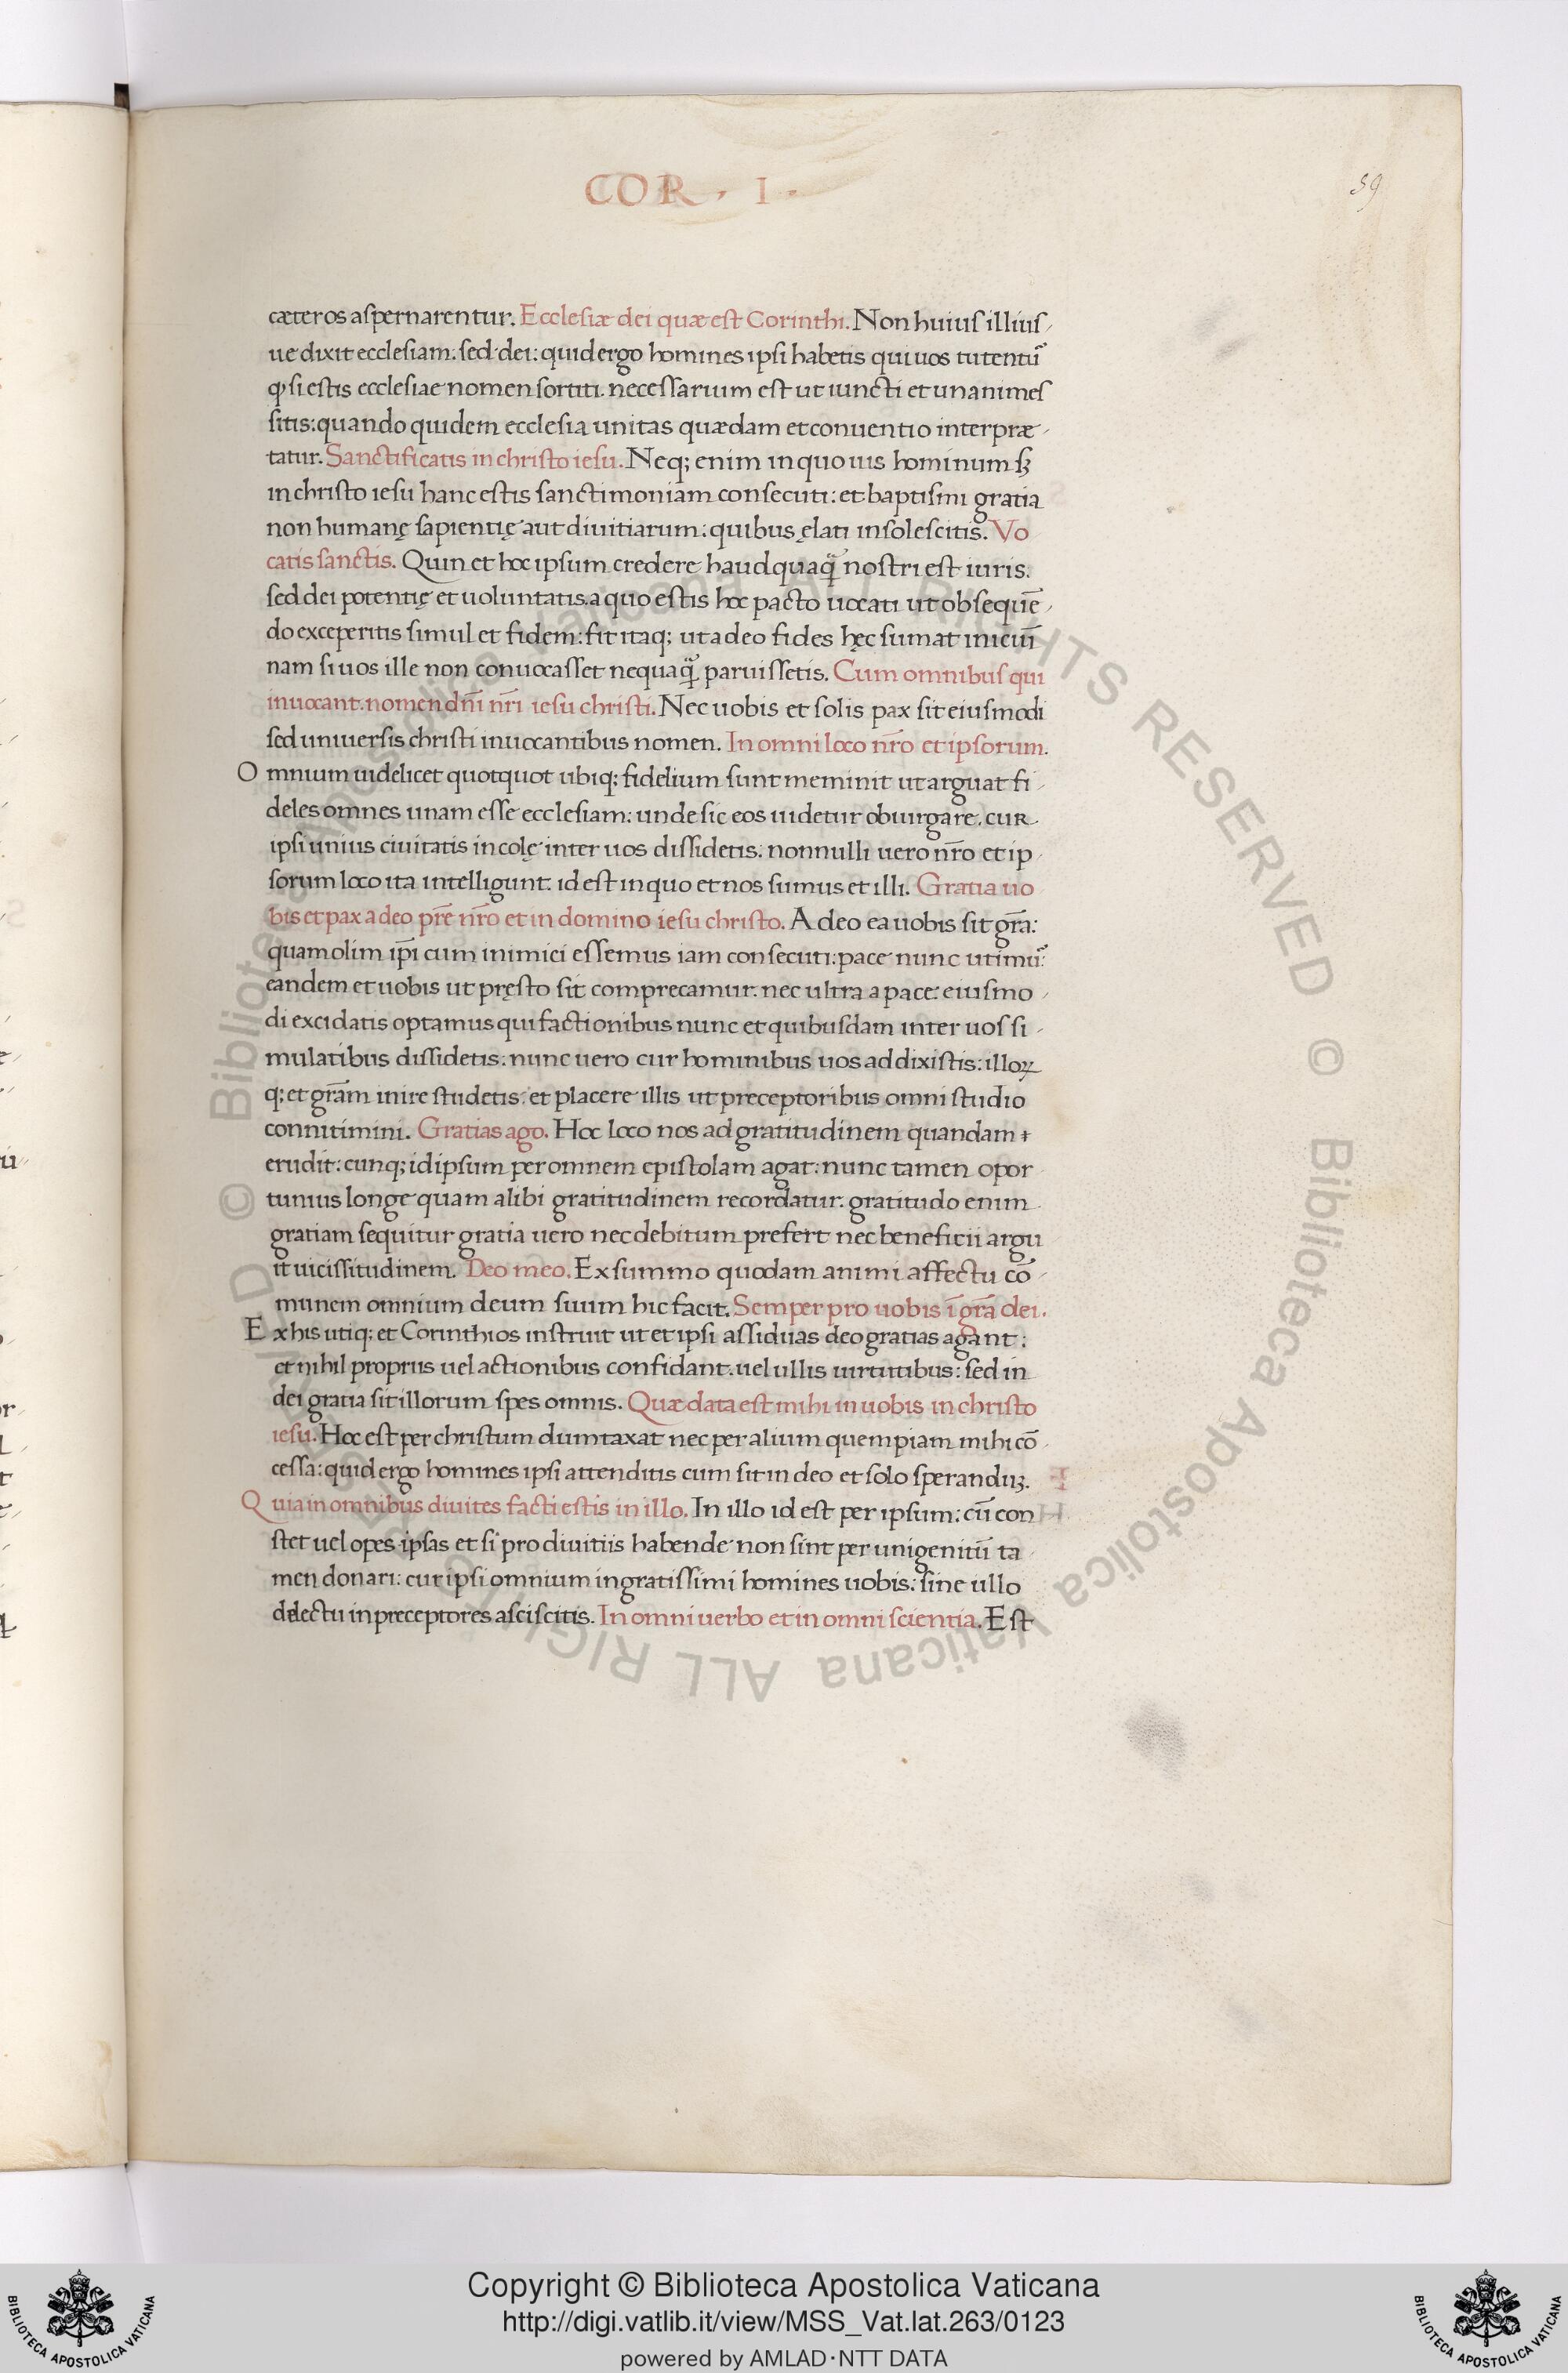 COR · I ·
59
cæteros aspernarentur. Ecclesiæ dei quæ est Corinthi. Non huius illius
ue dixit ecclesiam: sed dei: quid ergo homines ipsi habetis qui uos tutent᷑
ꝙ si estis ecclesiae nomen sortiti. necessarium est ut iuncti et unanimes
sitis: quando quidem ecclesia unitas quædam et conuentio interpræ
tatur. Sanctificatis in christo iesu. Neq; enim in quo uis hominum sꝫ
in christo iesu hanc estis sanctimoniam consecuti: et baptismi gratia
non humanę sapientię aut diuitiarum: quibus ęlati insolescitis. Vo
catis sanctis. Quin et hoc ipsum credere haudquaq̃ nostri est iuris.
sed dei potentię et uoluntatis. a quo estis hoc pacto uocati ut obsequē
do exceperitis simul et fidem: fit itaq; ut a deo fides hęc sumat iniciū
nam si uos ille non conuocasset nequaq̃ paruissetis. Cum omnibus qui
inuocant. nomen dn̄i nr̄i iesu christi. Nec uobis et solis pax sit eiusmodi
sed uniuersis christi inuocantibus nomen. In omni loco nr̄o et ipsorum.
Omnium uidelicet quotquot ubiq; fidelium sunt meminit ut arguat fi
deles omnes unam esse ecclesiam: unde sic eos uidetur obiurgare. cur
ipsi unius ciuitatis incolę inter uos dissidetis. nonnulli uero nr̄o et ip
sorum loco ita intelligunt. id est in quo et nos sumus et illi. Gratia uo
bis et pax a deo pr̄e nr̄o et in domino iesu christo. A deo ea uobis sit gr̄a:
quam olim ip̄i cum inimici essemus iam consecuti: pace nunc utimu᷑:
eandem et uobis ut pręsto sit comprecamur. nec ultra a pace eiusmo
di excidatis optamus qui factionibus nunc et quibusdam inter uos si
mulatibus dissidetis: nunc uero cur hominibus uos addixistis: illoꝝ
q; et gr̄am inire studetis: et placere illis ut preceptoribus omni studio
connitimini. Gratias ago. Hoc loco nos ad gratitudinem quandam
erudit: cunq; id ipsum per omnem epistolam agat: nunc tamen opor
tunius longe quam alibi gratitudinem recordatur. gratitudo enim
gratiam sequitur gratia uero nec debitum prefert nec beneficii argu
it uicissitudinem. Deo meo. Ex summo quodam animi affectu cō
munem omnium deum suum hic facit. Semper pro uobis ī gr̄a dei.
Ex his utiq; et Corinthios instruit ut et ipsi assiduas deo gratias agant:
et nihil propriis uel actionibus confidant. uel ullis uirtutibus: sed in
dei gratia sit illorum spes omnis. Quæ data est mihi in uobis in christo
iesu. Hoc est per christum dumtaxat nec per alium quempiam mihi cō
cessa: quid ergo homines ipsi attenditis cum sit in deo et solo sperandūꝫ.
Quia in omnibus diuites facti estis in illo. In illo id est per ipsum: cū con
stet uel opes ipsas et si pro diuitiis habende non sint per unigenitū ta
men donari: cur ipsi omnium ingratissimi homines uobis: sine ullo
delectu in preceptores asciscitis. In omni uerbo et in omni scientia. Est
© Biblioteca Apostolica Vaticana ALL RIGHTS RESERVED © Biblioteca Apostolica Vaticana ALL RIGHTS RESERVED
Copyright © Biblioteca Apostolica Vaticana
http://digi.vatlib.it/view/MSS_Vat.lat.263/0123
powered by AMLAD·NTT DATA
BIBLIOTECA APOSTOLICA VATICANA
BIBLIOTECA APOSTOLICA VATICANA